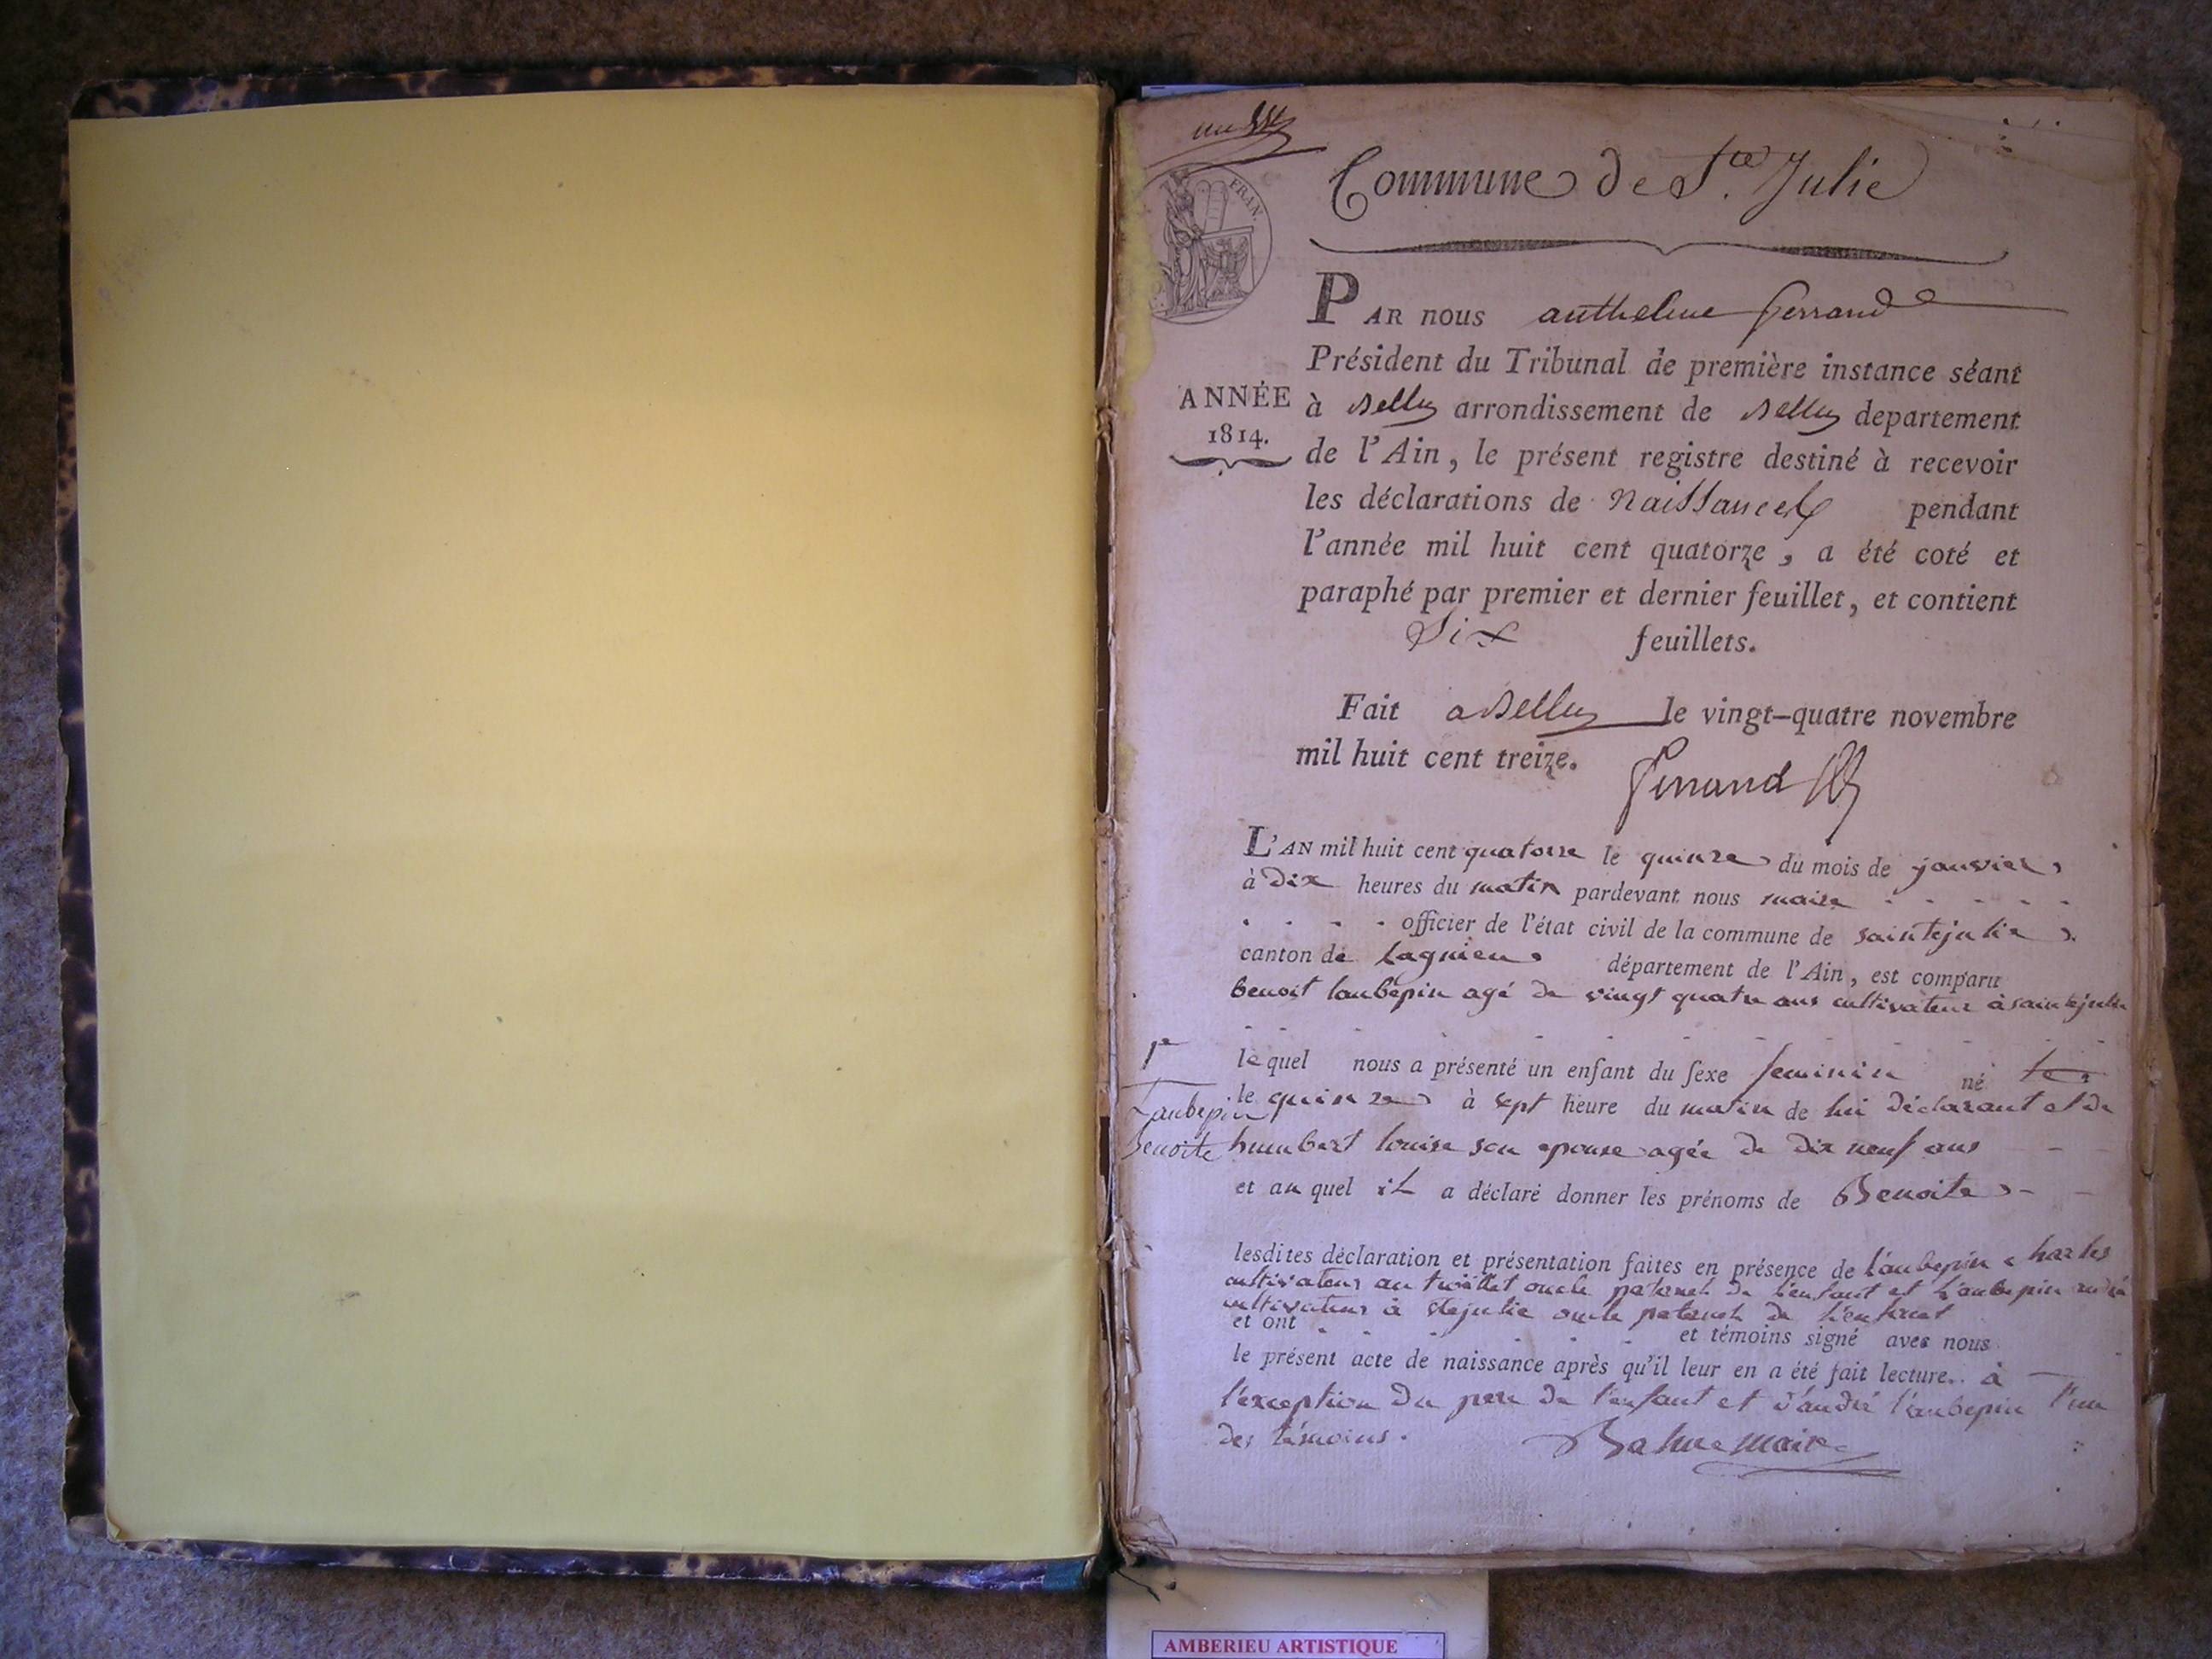 FRAN.
Commune de Ste Julie
PAR nous anthelme ferrand
Président du Tribunal de première instance séant
à Belley arrondissement de Belley departement
ANNÉE
1814.
de l'Ain, le présent registre destiné à recevoir
les déclarations de Naissances pendant
l'année mil huit cent quatorze, a été coté et
paraphé par premier et dernier feuillet, et contient
Six feuillets.
Fait a Belley le vingt-quatre novembre
mil huit cent treize.
ferrand
L'AN mil huit cent quatorze le quinze du mois de janvier
à dix heures du matin pardevant nous maire
officier de l'état civil de la commune de saintejulie
canton de lagnieu département de l'Ain, est comparu
benoit laubepin agé de vingt quatre ans cultivateur à saintejulie
1er
lequel nous a présenté un enfant du sexe feminin né
Laubepin
Benoite
le quinze à sept heure du matin de lui déclarant et de
humbert louise son epouse agée de dix neuf ans
et au quel il a déclaré donner les prénoms de Benoite
lesdites déclaration et présentation faites en présence de laubepin charles
cultivateur au oncle paternel de l'enfant et laubepin
cultivateur à stejulie oncle paternel de l'enfant
et ont et témoins signé avec nous
le présent acte de naissance après qu'il leur en a été fait lecture. à
l'exception du pere de l'enfant et d'andré laubepin l'un
des témoins.
maire
AMBERIEU ARTISTIQUE